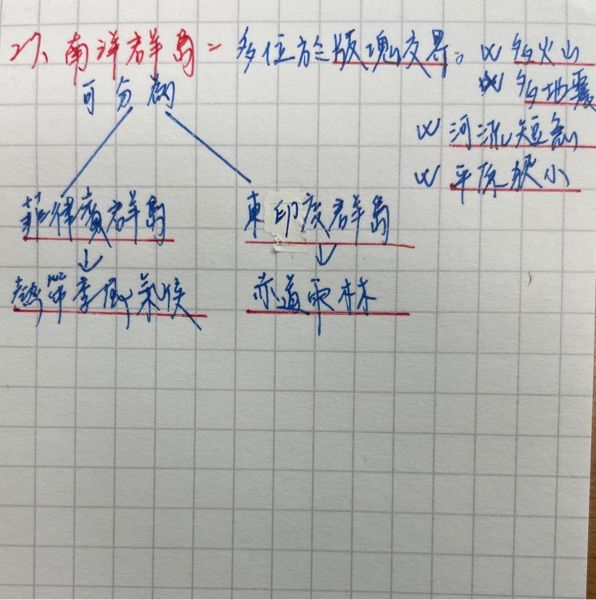 27、南洋群島-多位於版塊交界。 ∝多火山
可分為 ∝多地震
∝河流短急
∝平原狹小
菲律賓群島 東印度群島
↓ ↓
熱帶季風氣候 赤道雨林